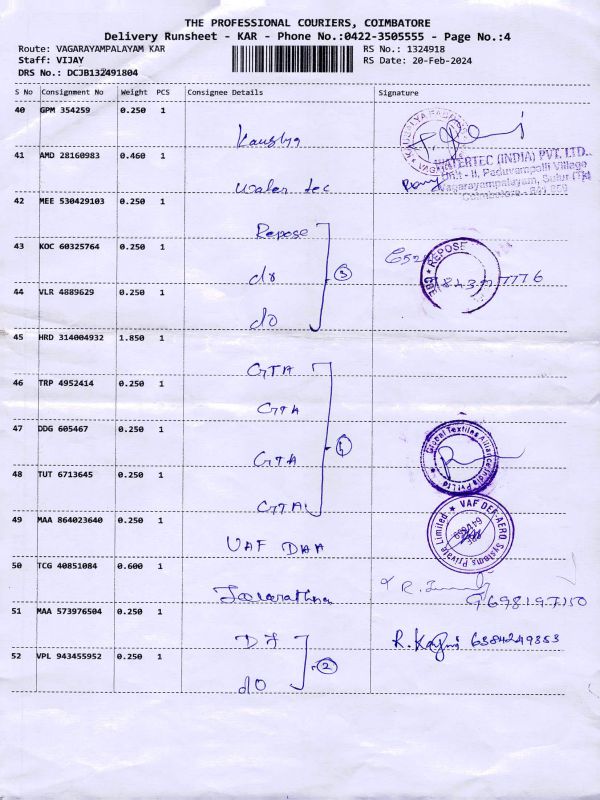 THE PROFESSIONAL COURIERS, COIMBATORE
Delivery Runsheet - KAR - Phone No.:0422-3505555 - Page No.:4
Route: VAGARAYAMPALAYAM KAR RS No.: 1324918
Staff: VIJAY RS Date: 20-Feb-2024
DRS No.: DCJB132491804
S No Consignment No Weight PCS Consignee Details Signature
40 GPM 354259 0.250 1
Kauslya
41 AMD 28160983 0.460 1
WATERTEC (INDIA) PVT. LTD.
Unit - II, Paduvampalli Village
Vagarayampalayam, Sulur (Tk)
Coimbatore - 641 659
Water tec
42 MEE 530429103 0.250 1
Repose
43 KOC 60325764 0.250 1
do
3
REPOSE
44 VLR 4889629 0.250 1
do
45 HRD 314004932 1.850 1
GTA
46 TRP 4952414 0.250 1
GTA
47 DDG 605467 0.250 1
GTA
Global Textiles Alliance India Pvt Ltd
48 TUT 6713645 0.250 1
GTA
49 MAA 864023640 0.250 1
VAF
VAF DEF-AERO Systems Private Limited
50 TCG 40851084 0.600 1
9698197150
51 MAA 573976504 0.250 1
DF
R. 6384249353
52 VPL 943455952 0.250 1
do
2